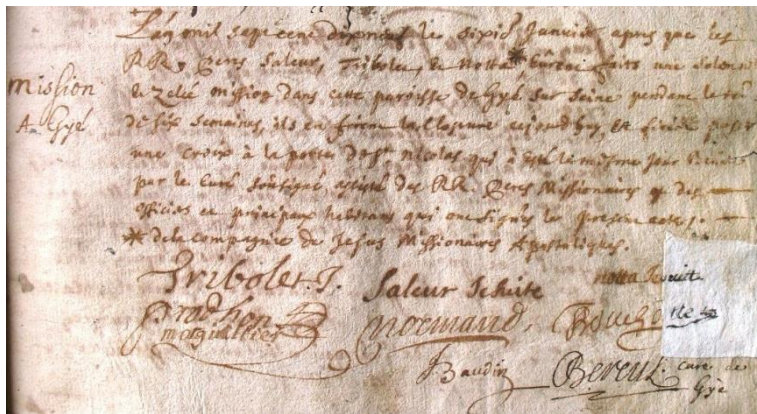 L'an mil sept cent dixneuf le sixie Janvier apres que les
RR. Peres Saleur, Tribolet, de Notta * eurent faits une solenne
& zelée mission dans cette parroisse de Gyé sur Seine pendant le
de six semaines, ils en firent la Closture aujourdhuy, et firent poser
une croix à la porte de St Nicolas qui à esté le mesme jour benite
par le Curé soussigné assisté des RR. Peres Missionaires & des
officiers et principaux habitans qui ont signés le present acte.
* de la compagnie de Jesus Missionaires Apostoliques.
mission
A Gyé
Tribolet. J. Saleur Jesuite notta Jesuitt
marguillier normand,
Baudin curé de
Gyé